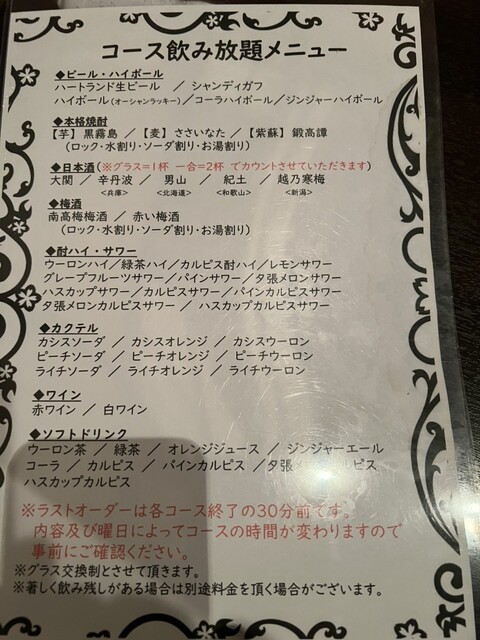 コース飲み放題メニュー
◆ビール・ハイボール
ハートランド生ビール ／ シャンディガフ
ハイボール(オーシャンラッキー)／コーラハイボール／ジンジャーハイボール
◆本格焼酎
【芋】黒霧島 ／【麦】ささいなた ／【紫蘇】鍛高譚
(ロック・水割り・ソーダ割り・お湯割り)
◆日本酒(※グラス=1杯 一合=2杯 でカウントさせていただきます)
大関 ／ 辛丹波 ／ 男山 ／ 紀土 ／ 越乃寒梅
<兵庫> <北海道> <和歌山> <新潟>
◆梅酒
南高梅梅酒 ／ 赤い梅酒
(ロック・水割り・ソーダ割り・お湯割り)
◆酎ハイ・サワー
ウーロンハイ／緑茶ハイ／カルピス酎ハイ／レモンサワー
グレープフルーツサワー／パインサワー／夕張メロンサワー
ハスカップサワー／カルピスサワー／パインカルピスサワー
夕張メロンカルピスサワー ／ ハスカップカルピスサワー
◆カクテル
カシスソーダ ／ カシスオレンジ ／ カシスウーロン
ピーチソーダ ／ ピーチオレンジ ／ ピーチウーロン
ライチソーダ ／ ライチオレンジ ／ ライチウーロン
◆ワイン
赤ワイン ／ 白ワイン
◆ソフトドリンク
ウーロン茶 ／ 緑茶 ／ オレンジジュース ／ ジンジャーエール
コーラ ／ カルピス ／ パインカルピス ／夕張メ ルピス
ハスカップカルピス
※ラストオーダーは各コース終了の30分前です。
内容及び曜日によってコースの時間が変わりますので
事前にご確認ください。
※グラス交換制とさせて頂きます。
※著しく飲み残しがある場合は別途料金を頂く場合がございます。